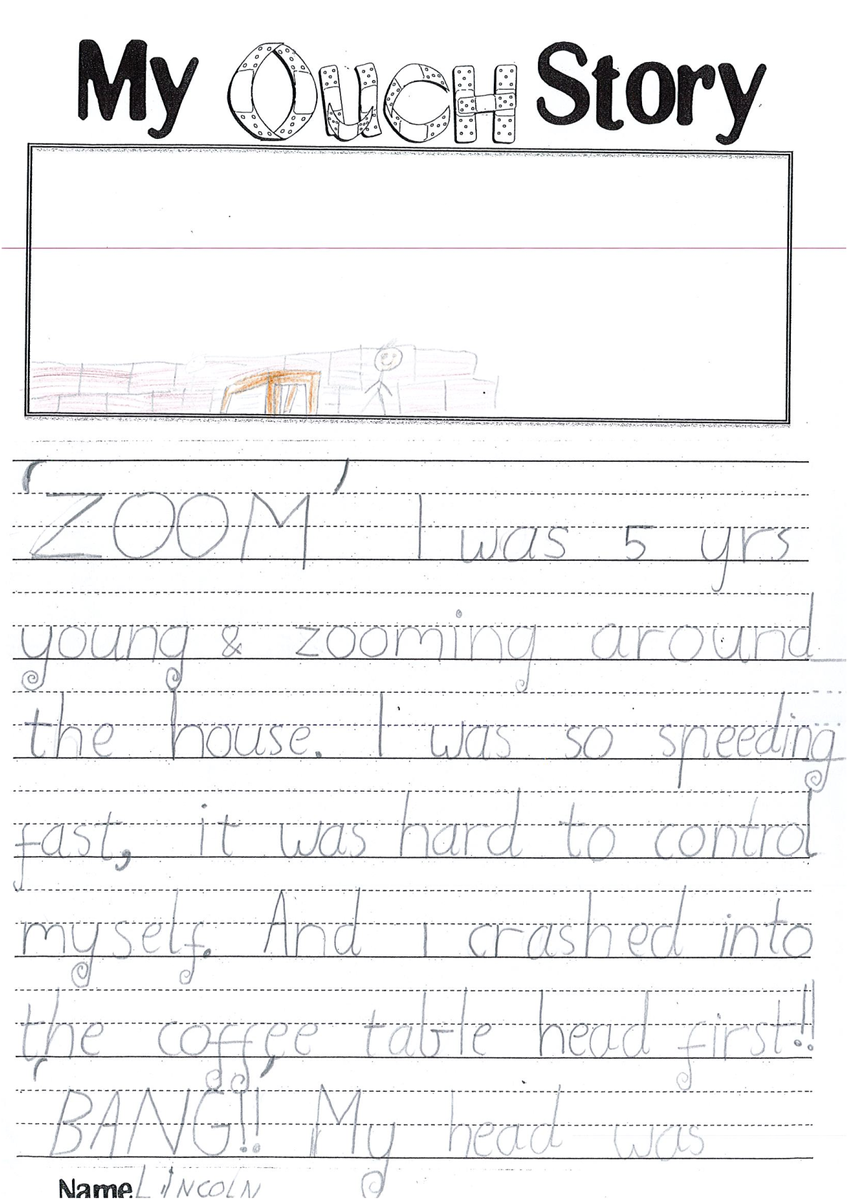 My OUCH Story
'ZOOM' I was 5 yrs
young & zooming around
the house. I was so speeding
fast, it was hard to control
myself. And I crashed into
the coffee table head first!!
'BANG!!' My head was
Name LINCOLN